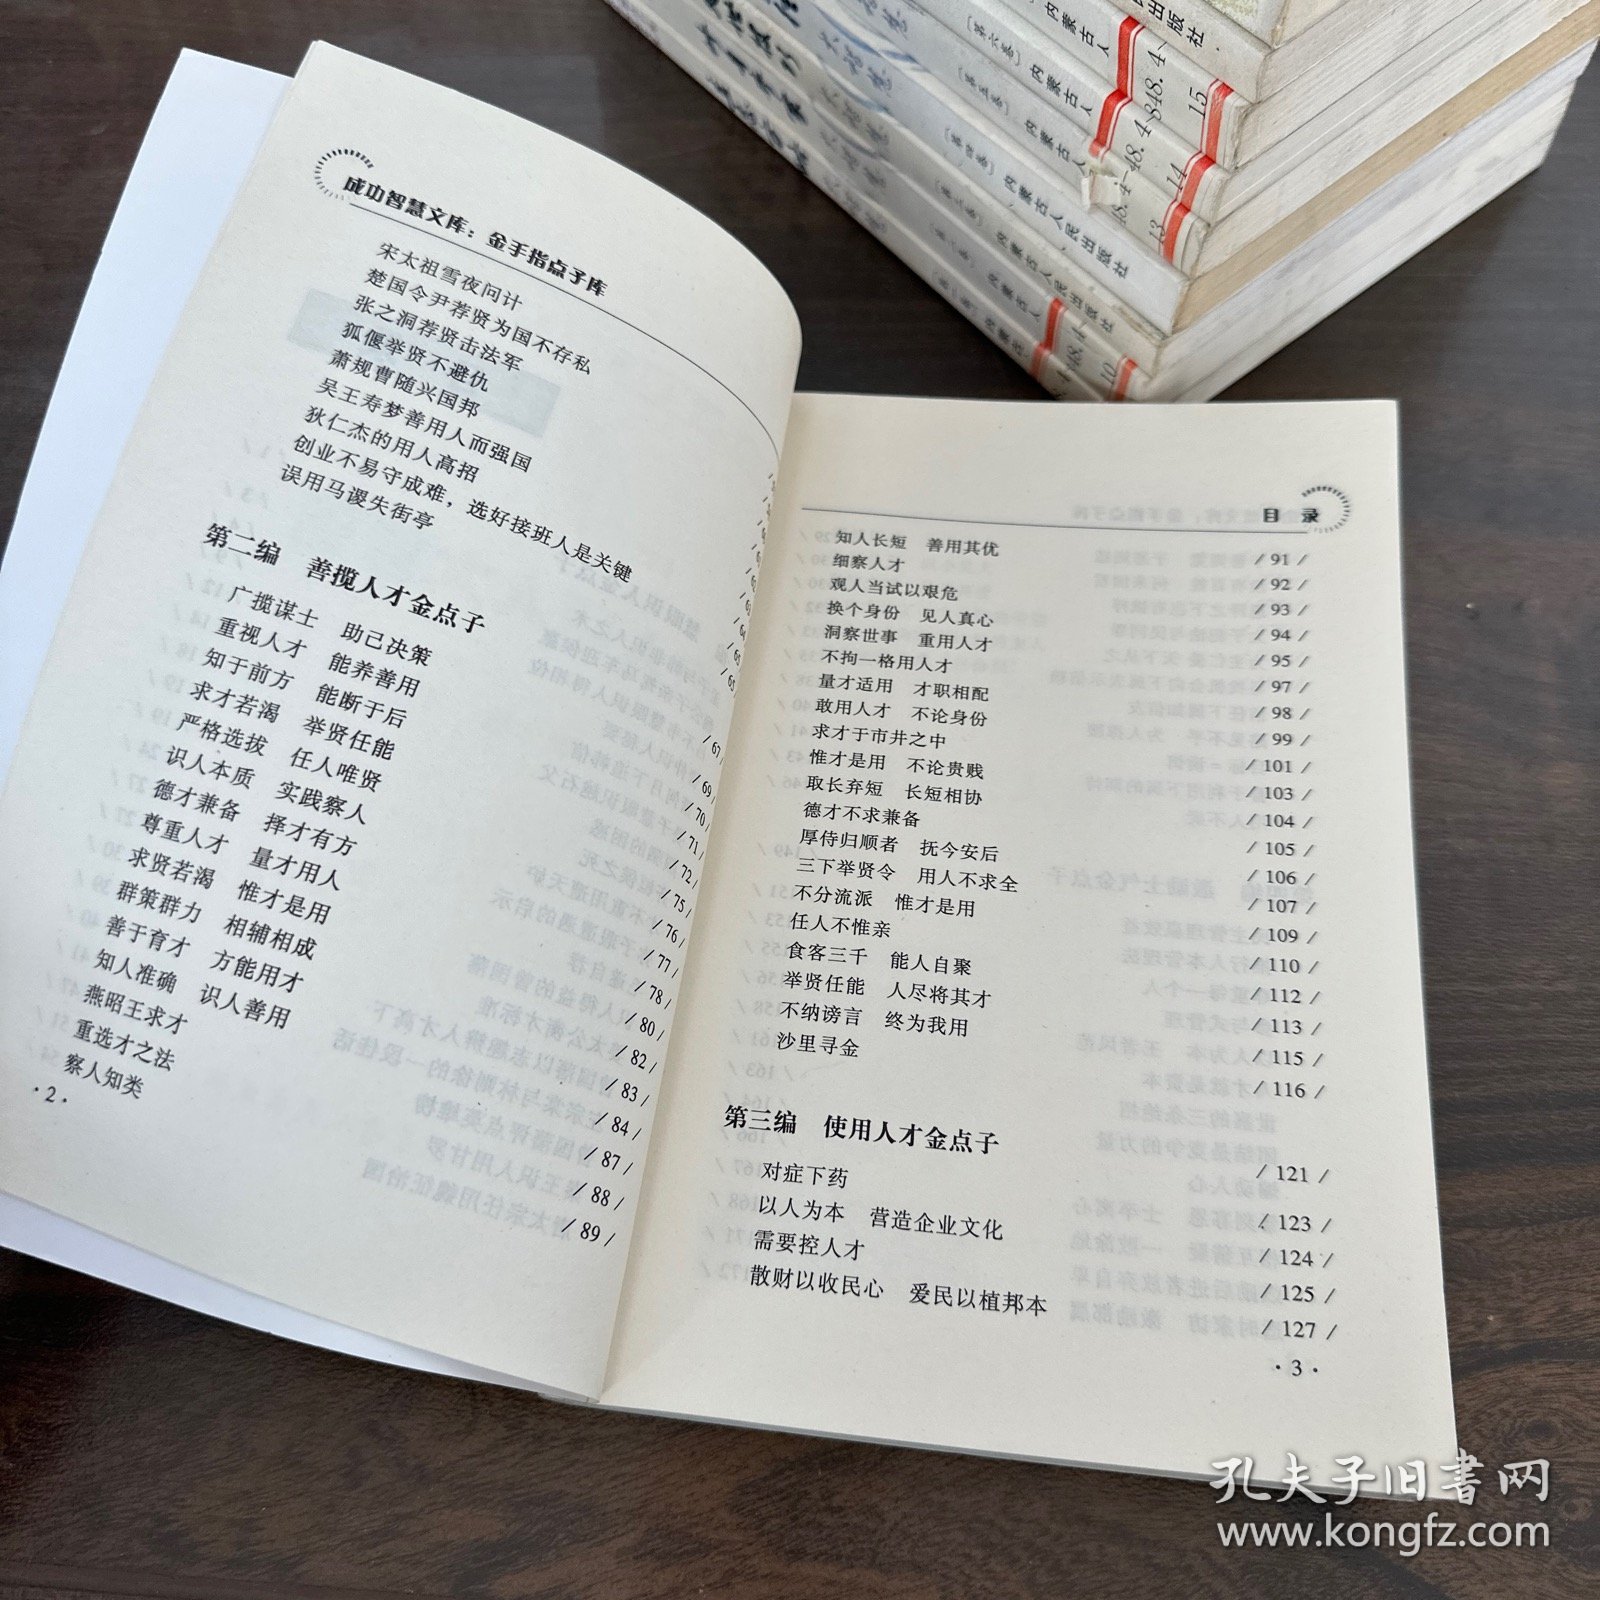 成功智慧文库：金手指点子库
宋太祖雪夜问计
楚国令尹荐贤为国不存私
张之洞荐贤击法军
狐偃举贤不避仇
萧规曹随兴国邦
吴王寿梦善用人而强国
狄仁杰的用人高招
创业不易守成难，选好接班人是关键
误用马谡失街亭
第二编 善揽人才金点子
广揽谋士 助己决策 / 67 /
重视人才 能养善用 / 69 /
知于前方 能断于后 / 70 /
求才若渴 举贤任能 / 71 /
严格选拔 任人唯贤 / 72 /
识人本质 实践察人 / 75 /
德才兼备 择才有方 / 76 /
尊重人才 量才用人 / 77 /
求贤若渴 惟才是用 / 78 /
群策群力 相辅相成 / 80 /
善于育才 方能用才 / 82 /
知人准确 识人善用 / 83 /
燕昭王求才 / 84 /
重选才之法 / 87 /
察人知类 / 88 /
/ 89 /
· 2 ·
目 录
知人长短 善用其优 / 91 /
细察人才 / 92 /
观人当试以艰危 / 93 /
换个身份 见人真心 / 94 /
洞察世事 重用人才 / 95 /
不拘一格用人才 / 97 /
量才适用 才职相配 / 98 /
敢用人才 不论身份 / 99 /
求才于市井之中 / 101 /
惟才是用 不论贵贱 / 103 /
取长弃短 长短相协 / 104 /
德才不求兼备 / 105 /
厚侍归顺者 抚今安后 / 106 /
三下举贤令 用人不求全 / 107 /
不分流派 惟才是用 / 109 /
任人不惟亲 / 110 /
食客三千 能人自聚 / 112 /
举贤任能 人尽将其才 / 113 /
不纳谤言 终为我用 / 115 /
沙里寻金 / 116 /
第三编 使用人才金点子
对症下药 / 121 /
以人为本 营造企业文化 / 123 /
需要控人才 / 124 /
散财以收民心 爱民以植邦本 / 125 /
/ 127 /
· 3 ·
内蒙古人民出版社
15
14
13
10
孔夫子旧書网
www.kongfz.com